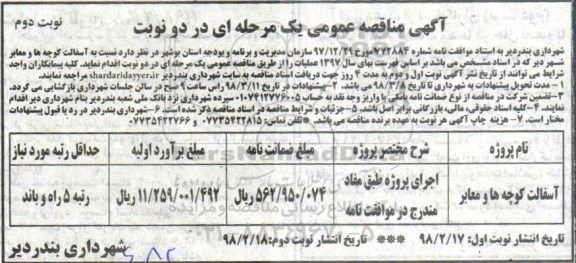 نوبت دوم
آگهی مناقصه عمومی یک مرحله ای در دو نوبت
شهرداری بندردیر به استناد موافقت نامه شماره ۷۷۲۸۸۴ مورخ ۹۷/۱۲/۲۹ سازمان مدیریت و برنامه و بودجه استان بوشهر در نظر دارد نسبت به آسفالت کوچه ها و معابر
شهر دیر که در اسناد مشخص می باشد بر اساس فهرست بهای سال ۱۳۹۷ عملیات را از طریق مناقصه عمومی یک مرحله ای در دو نوبت اقدام نماید. کلیه پیمانکاران واجد
شرایط می توانند از تاریخ نشر آگهی نوبت اول و دوم به مدت ۴ روز جهت دریافت اسناد مناقصه به سایت شهرداری بندردیر shardaridayyer.ir مراجعه نمایند.
۱- مدت تحویل پیشنهادات به تاریخ ۹۸/۳/۸ می باشد. ۲- پیشنهادات در تاریخ ۹۸/۳/۱۱ راس ساعت ۹ صبح در سالن جلسات شهرداری بازگشایی می گردد.
۳- تضمین شرکت در مناقصه از نوع ضمانت نامه بانکی یا واریز وجه نقد به حساب ۰۱۰۷۴۱۲۷۶۰۰۵ سپرده شهرداری نزد بانک ملی شعبه بندردیر بنام شهرداری دیر اقدام
نمایند. ۴- کلیه اسناد حقوقی، مالی، بازرگانی برابر اصل باشد. ۵- جزئیات و شرایط مناقصه در اسناد مناقصه ذکر شده است. ۶- شهرداری بندردیر در رد یا قبول پیشنهادات
مختار است. ۷- هزینه چاپ آگهی هر نوبت به عهده برنده مناقصه می باشد. *تلفن تماس: ۰۷۷۳۵۴۲۲۸۱۵ و ۰۷۷۳۵۴۲۲۷۶۶
نام پروژه شرح مختصر پروژه مبلغ ضمانت نامه مبلغ برآورد اولیه حداقل رتبه مورد نیاز
آسفالت کوچه ها و معابر اجرای پروژه طبق مفاد مندرج در موافقت نامه ۵۶۲/۹۵۰/۰۷۴ ریال ۱۱/۲۵۹/۰۰۱/۴۹۲ ریال رتبه ۵ راه و باند
تاریخ انتشار نوبت اول: ۹۸/۲/۱۷ *** تاریخ انتشار نوبت دوم: ۹۸/۲/۱۸
شهرداری بندردیر